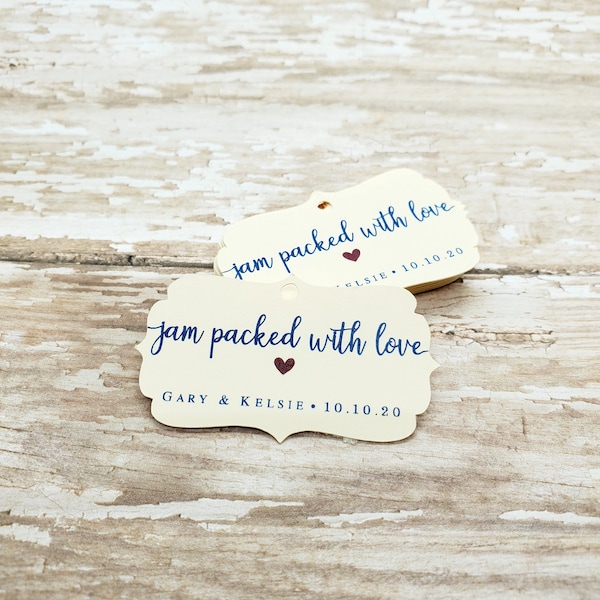 jam packed with love
KELSIE • 10.10.20
jam packed with love
GARY & KELSIE • 10.10.20